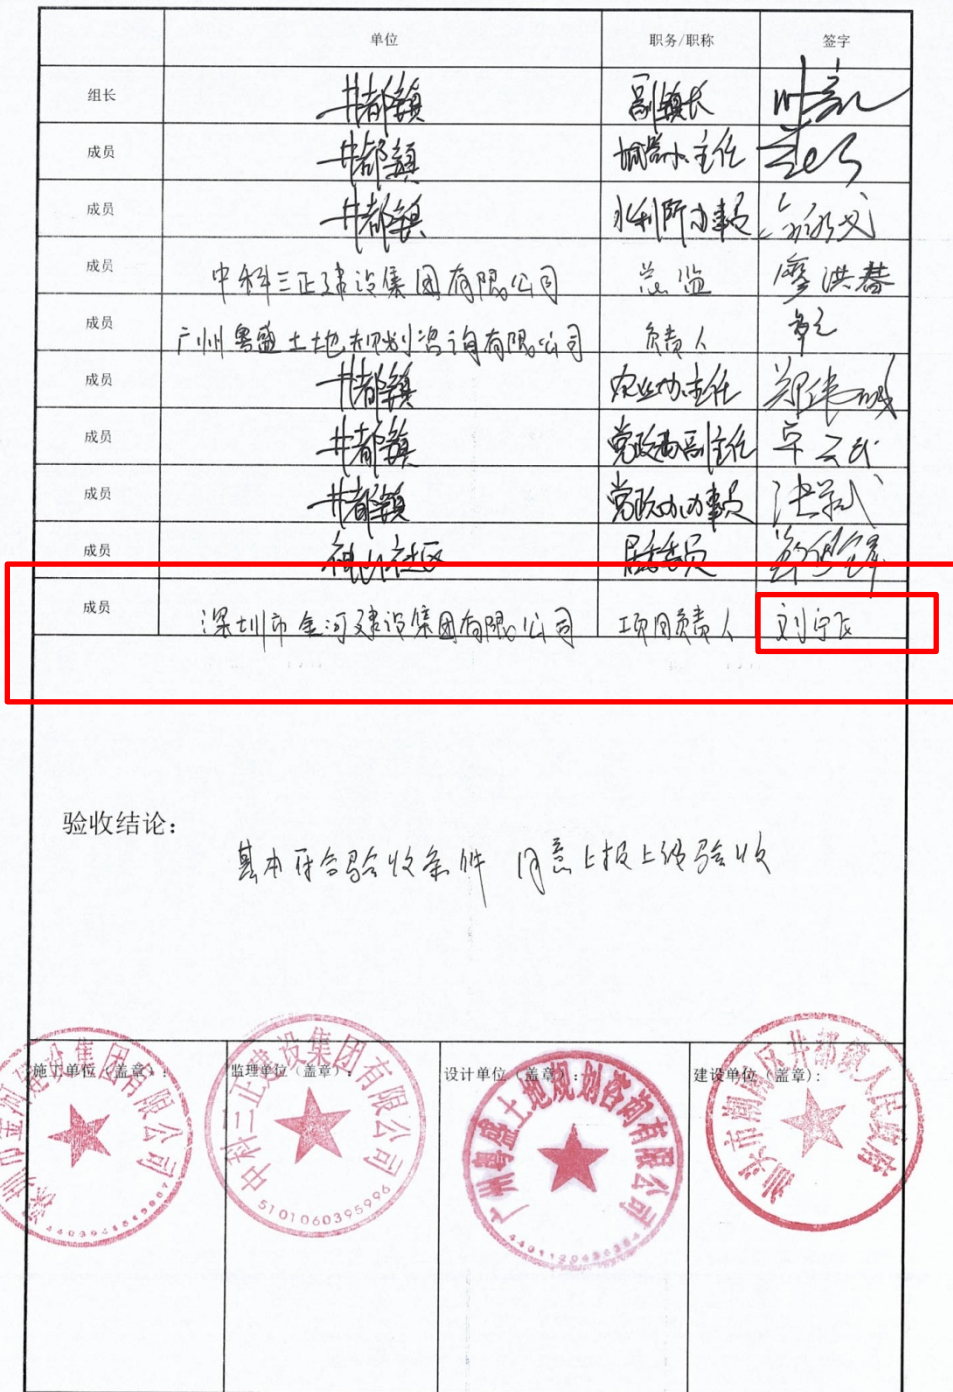 单位 职务/职称 签字
组长 井都镇 副镇长
成员 井都镇 主任
成员 井都镇 水利所办事员
成员 中科三正建设集团有限公司 总监 廖洪春
成员 广州粤盛土地规划咨询有限公司 负责人
成员 井都镇 农业办主任
成员 井都镇 党政办副主任
成员 井都镇 党政办办事员
成员 神山社区 居委委员
成员 深圳市金河建设集团有限公司 项目负责人 刘宁飞
验收结论:
基本符合验收条件 同意上报上级验收
施工单位(盖章): 监理单位(盖章): 设计单位(盖章): 建设单位(盖章):
深圳市金河建设集团有限公司
中科三正建设集团有限公司
5101060395996
广州粤盛土地规划咨询有限公司
汕头市潮南区井都镇人民政府